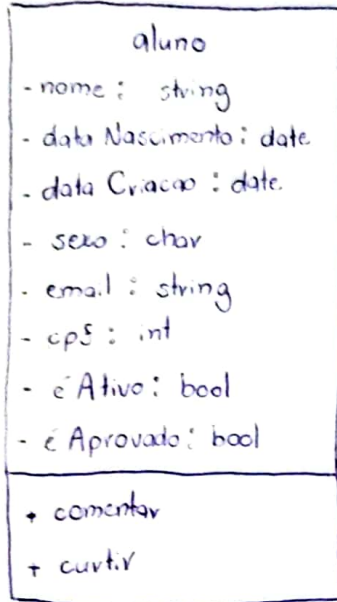 aluno
- nome : string
- data Nascimento : date
- data Criacao : date
- sexo : char
- email : string
- cpf : int
- éAtivo : bool
- éAprovado : bool
+ comentar
+ curtir